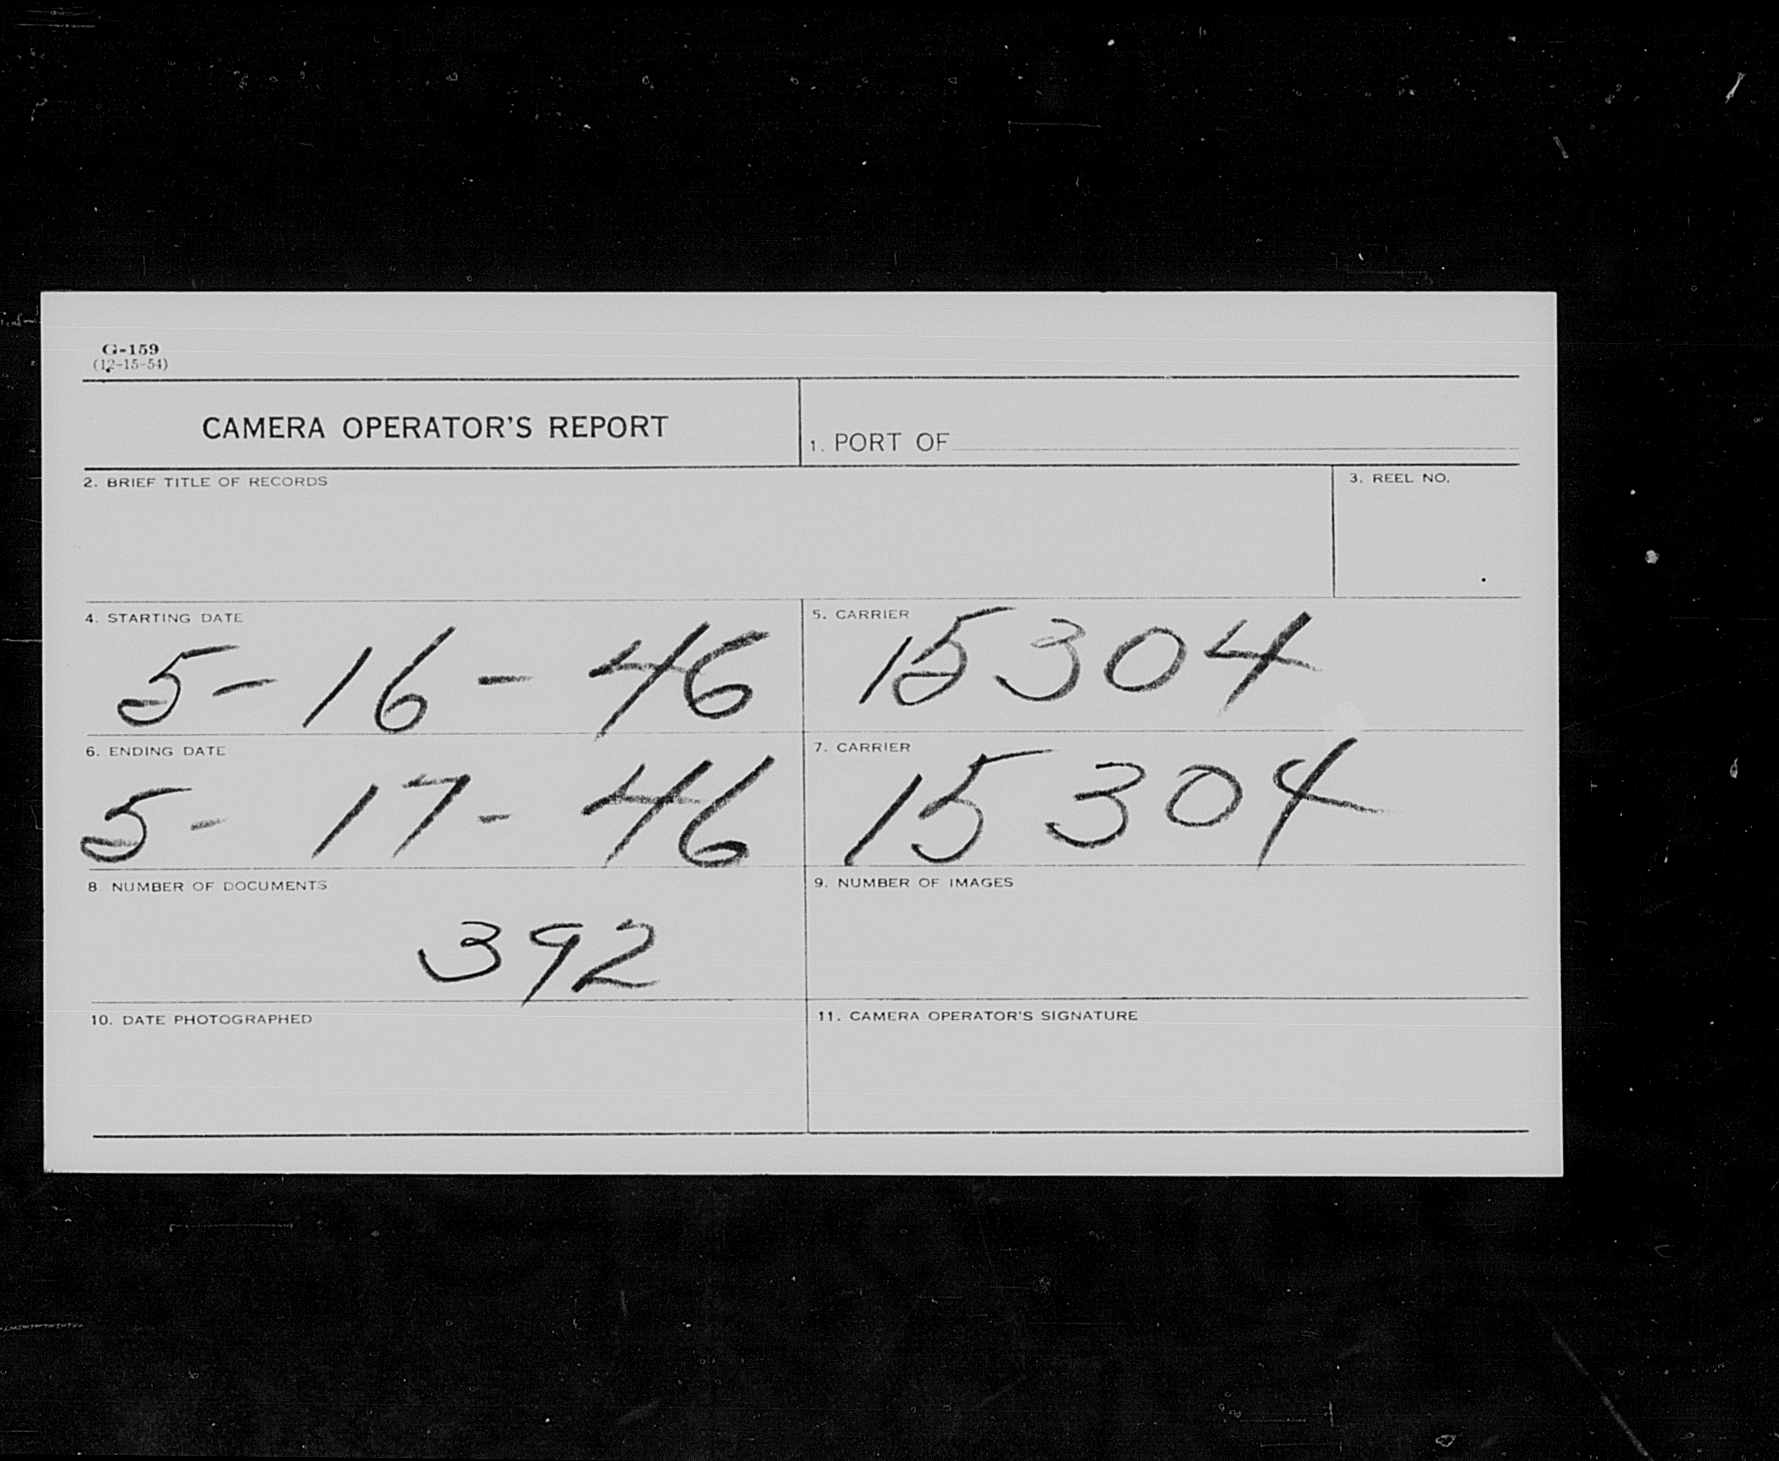 G-159
(12-15-54)
CAMERA OPERATOR'S REPORT
1. PORT OF
2. BRIEF TITLE OF RECORDS
3. REEL NO.
4. STARTING DATE
5-16-46
5. CARRIER
15304
6. ENDING DATE
5-17-46
7. CARRIER
15304
8. NUMBER OF DOCUMENTS
392
9. NUMBER OF IMAGES
10. DATE PHOTOGRAPHED
11. CAMERA OPERATOR'S SIGNATURE